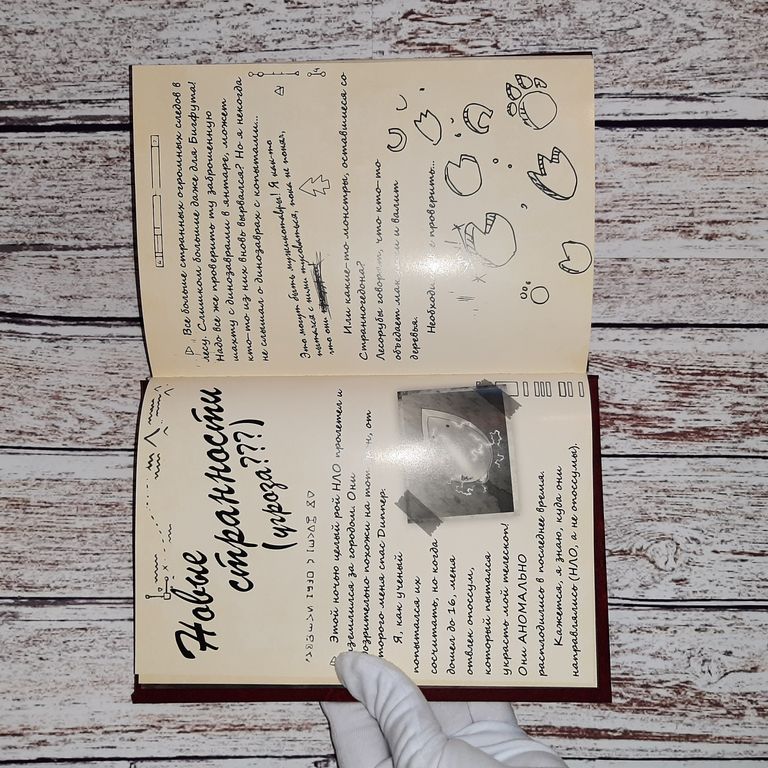 Новые
странности
(угроза???)
Этой ночью целый рой НЛО пролетел и
землился за городом. Они
озрительно похожи на тот от
торого меня спас Диппер.
Я, как ученый
попытался их
сосчитать, но когда
дошел до 16, меня
отвлек опоссум,
который пытался
украсть мой телескоп!
Они АНОМАЛЬНО
расплодились в последнее время.
Кажется, я знаю, куда они
направлялись (НЛО, а не опоссумы).
Все больше странных огромных следов в
лесу. Слишком большие даже для Бигфута!
Надо все же проверить ту заброшенную
шахту с динозаврами в янтаре, может
кто-то из них вновь вырвался? Но я никогда
не слышал о динозаврах с копытами...
Это могут быть мужикотавры! Я как-то
пытался с ними тусоваться, пока не понял,
что они
Или какие-то монстры, оставшиеся со
Странногедона?
Лесорубы говорят, что кто-то
объедает и валит
деревья.
проверить...